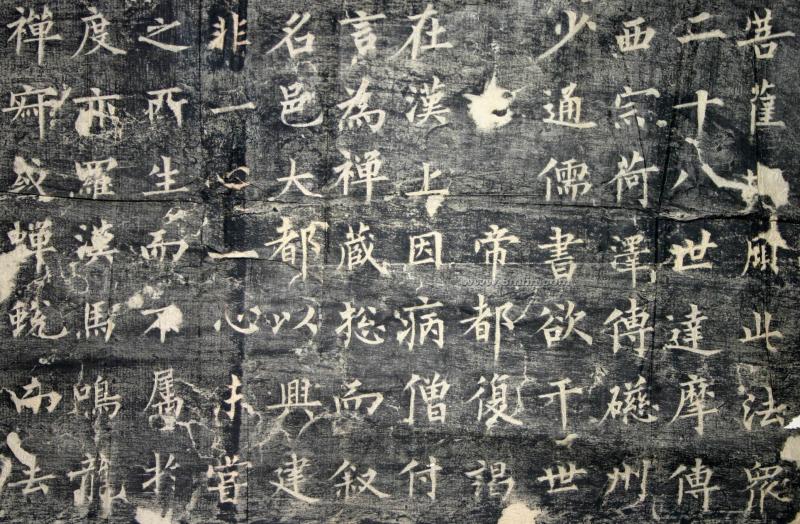 菩薩風此法眾
二十八世達摩傳
西宗荷澤傳磁州
少通儒書欲干世
帝都復謁
在漢上因病僧付
言為禪藏揔而叙
名邑大都以興建
非一心一心未嘗
之所生而不屬於
度亦羅漢馬鳴龍
禪或蟬蛻而法